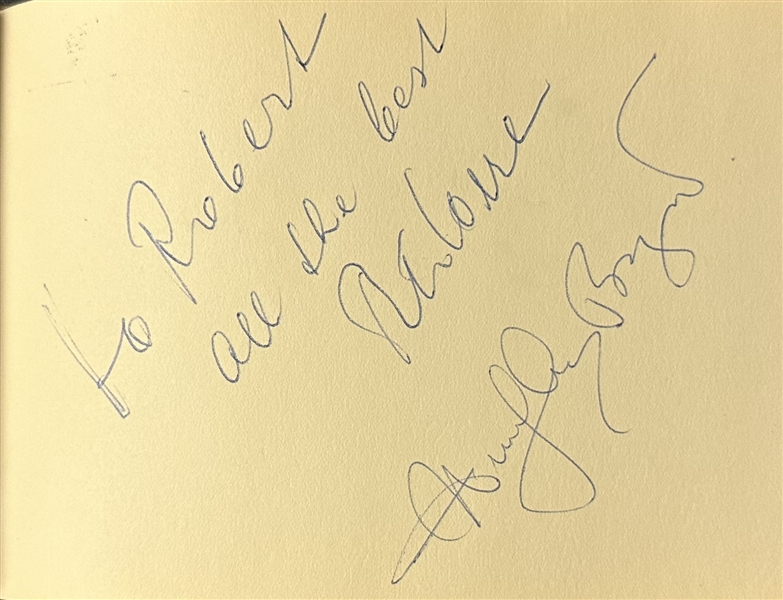 to Robert
all the best
Humphrey Bogart